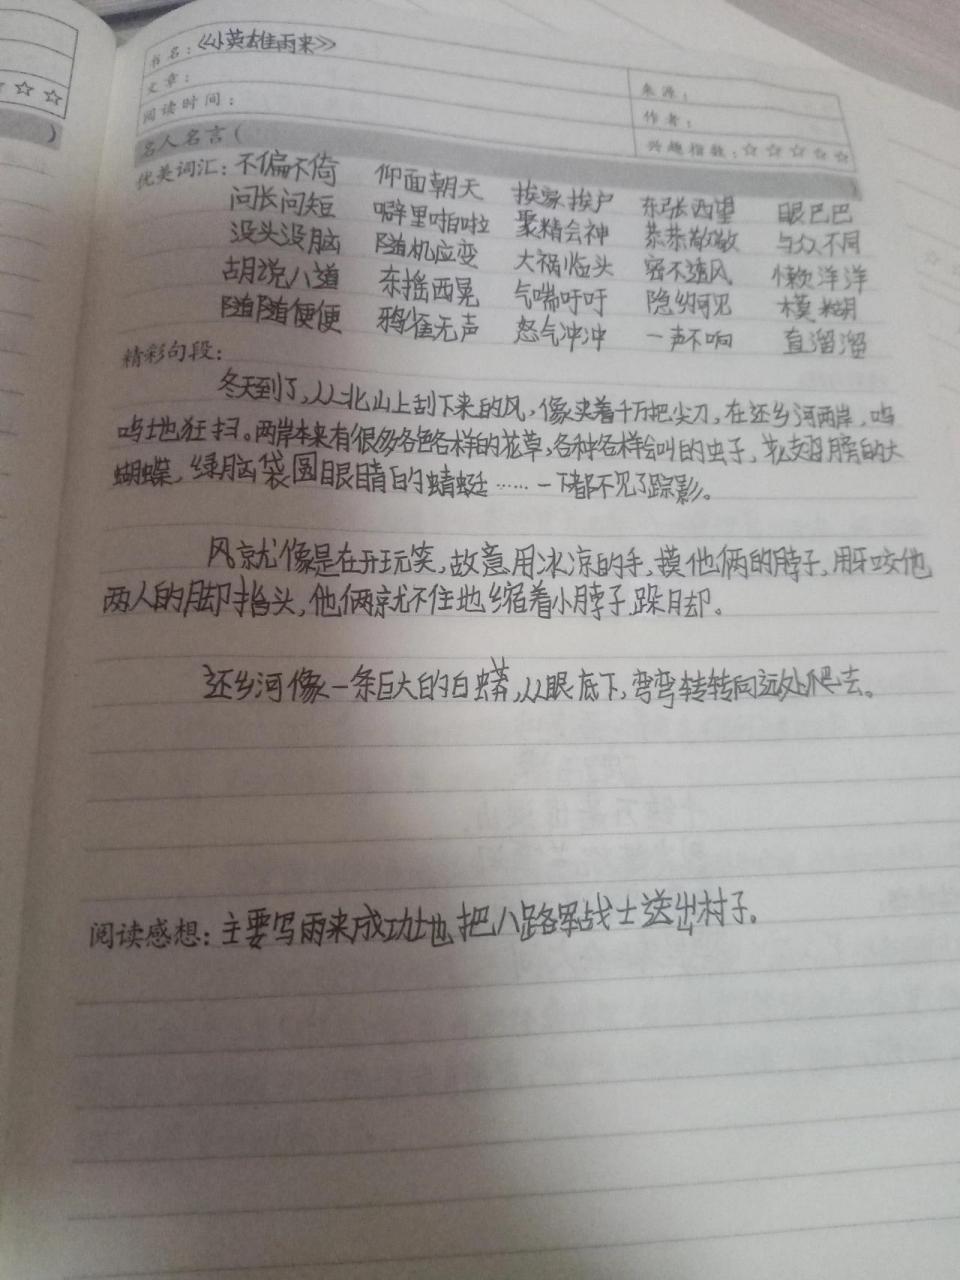 书名：《小英雄雨来》
文章：
阅读时间：
来源：
作者：
兴趣指数：☆☆☆☆☆
名人名言（ ）
优美词汇：不偏不倚 仰面朝天 挨家挨户 东张西望 眼巴巴
问长问短 噼里啪啦 聚精会神 恭恭敬敬 与众不同
没头没脑 随机应变 大祸临头 密不透风 懒洋洋
胡说八道 东摇西晃 气喘吁吁 隐约可见 模糊
随随便便 鸦雀无声 怒气冲冲 一声不响 直溜溜
精彩句段：
冬天到了，从北山上刮下来的风，像夹着千万把尖刀，在还乡河两岸，呜
呜地狂扫。两岸本来有很多各色各样的花草，各种各样会叫的虫子，花翅膀的大
蝴蝶，绿脑袋圆眼睛的蜻蜓……一下都不见了踪影。
风就像是在开玩笑，故意用冰凉的手，摸他俩的脖子，用牙咬他
两人的脚指头，他俩就不住地缩着小脖子，跺脚。
还乡河像一条巨大的白蟒，从眼底下，弯弯转转向远处爬去。
阅读感想：主要写雨来成功地把八路军战士送出村子。